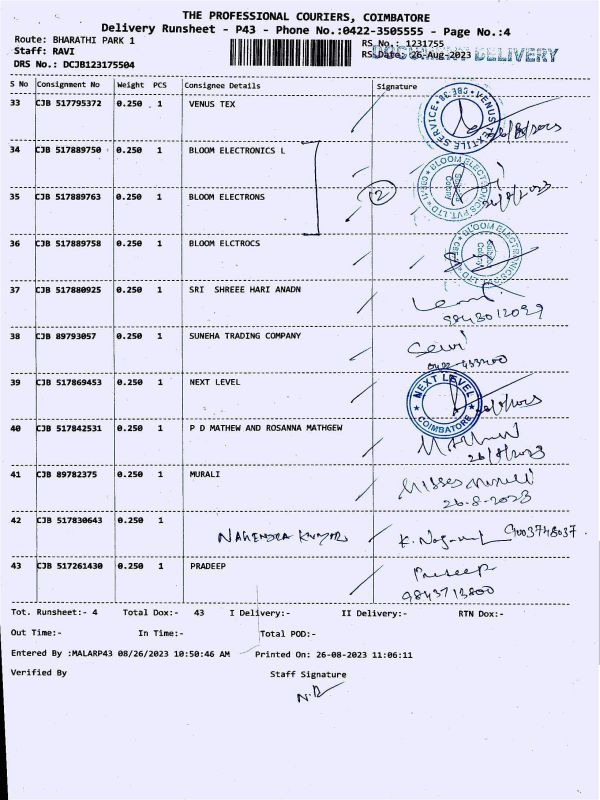 THE PROFESSIONAL COURIERS, COIMBATORE
Delivery Runsheet - P43 - Phone No.:0422-3505555 - Page No.:4
Route: BHARATHI PARK 1
RS No.: 1231755
Staff: RAVI
RS Date: 26-Aug-2023
DELIVERY
DRS No.: DCJB123175504
S No Consignment No Weight PCS Consignee Details Signature
33 CJB 517795372 0.250 . 1 VENUS TEX
34 CJB 517889750 0.250 1 BLOOM ELECTRONICS L
35 CJB 517889763 0.250 1 BLOOM ELECTRONS 2 26/8/2023
36 CJB 517889758 0.250 1 BLOOM ELCTROCS
37 CJB 517880925 0.250 1 SRI SHREEE HARI ANADN
9843012029
38 CJB 89793057 0.250 1 SUNEHA TRADING COMPANY
39 CJB 517869453 0.250 1 NEXT LEVEL NEXT LEVEL COIMBATORE
40 CJB 517842531 0.250 1 P D MATHEW AND ROSANNA MATHGEW
26/8/2023
41 CJB 89782375 0.250 1 MURALI
26-8-2023
42 CJB 517830643 0.250 1 NARENDRA KUMAR 9003748037
43 CJB 517261430 0.250 1 PRADEEP Pradeep
9843713800
Tot. Runsheet:- 4 Total Dox:- 43 I Delivery:- II Delivery:- RTN Dox:-
Out Time:- In Time:- Total POD:-
Entered By :MALARP43 08/26/2023 10:50:46 AM Printed On: 26-08-2023 11:06:11
Verified By Staff Signature